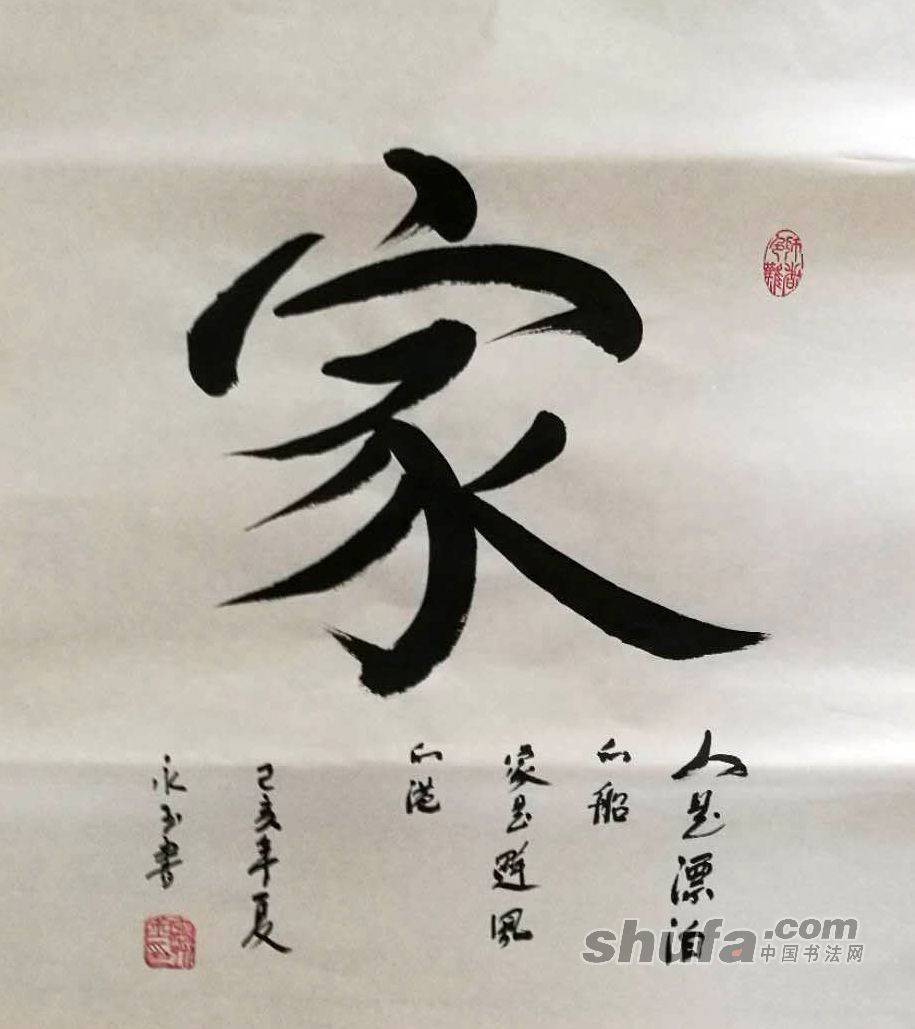 家
人是漂泊
的船
家是避风
的港
己亥年夏
永玉书
shufa.com
中国书法网